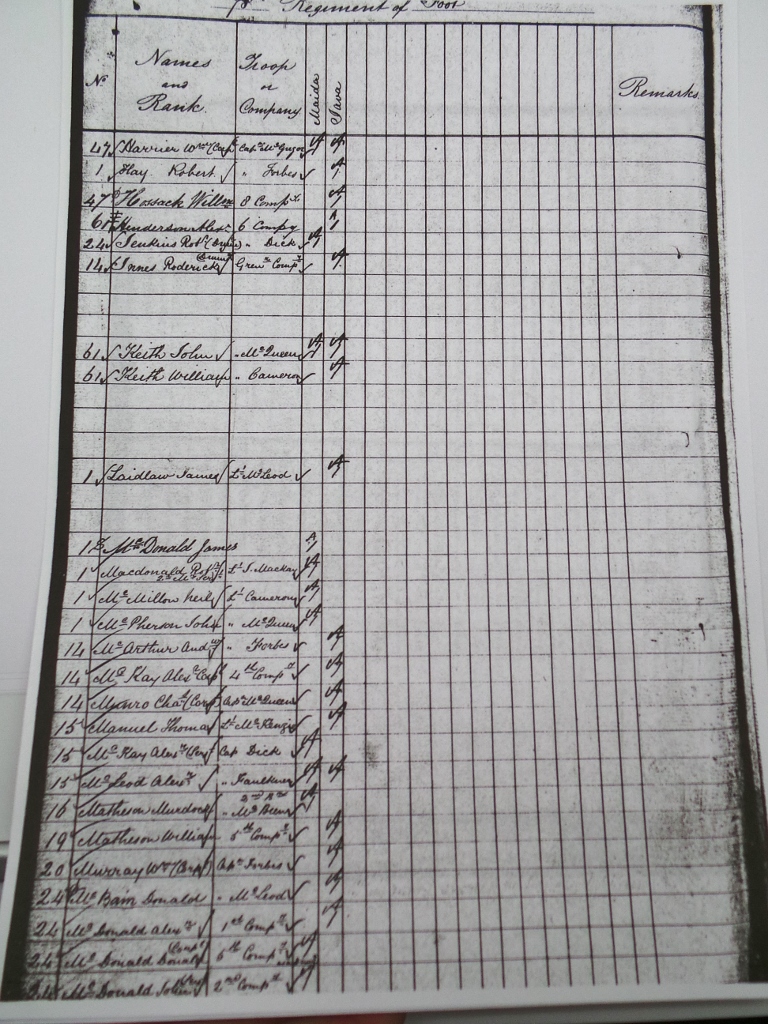 Regiment of Foot
No Names and Rank. Troop or Company Maida Java Remarks
47 Harrier Wm (Corp Capt McGregor A A
1 Hay Robert " Forbes A
47 Hossack Willm 8 Compy A
61 Henderson Alexr 6 Compy A
24 Jenkins Robt " Dick A
14 Innes Roderick (Drumr Grenr Compy A
61 Keith John " McQueen A A
61 Keith William " Cameron A
1 Laidlaw James Lt McLeod A
1 McDonald James A
1 Macdonald Robt Lt J. Mackay A
1 McMillow Neil Lt Cameron A
1 McPherson John " McQueen A
14 McArthur Andw " Forbes A
14 McKay Alexr Corp 4th Compy A
14 Munro Chas (Corp Capt McQueen A
15 Manuel Thomas Lt McKenzie A
15 McKay Alexr (Serjt Capt Dick A
15 McLeod Alexr " Faulkner A A
16 Matheson Murdoch " McBean A
19 Matheson William 5th Compy A
20 Murray Wm (Corp) Capt Forbes A
24 McBain Donald " McLeod A
24 McDonald Alexr 1st Compy A
24 McDonald Donald (Corpl 6th Compy A
24 McDonald John 2nd Compy A